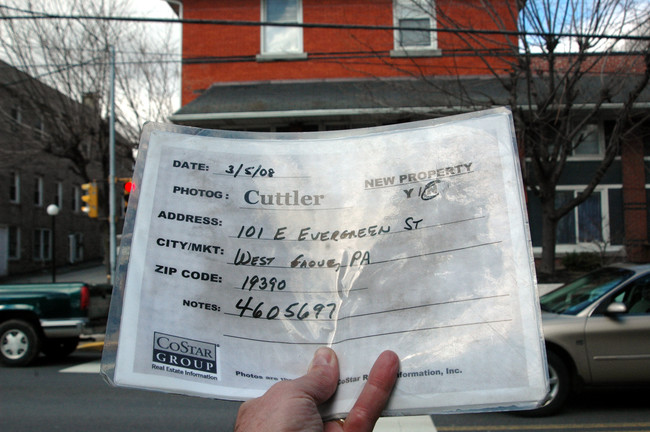 DATE: 3/5/08
NEW PROPERTY
PHOTOG: Cuttler
Y/
ADDRESS: 101 E EVERGREEN ST
CITY/MKT: WEST GROVE, PA
ZIP CODE: 19390
NOTES: 4605697
COSTAR
GROUP
Real Estate Information
Photos are CoStar Realty Information, Inc.